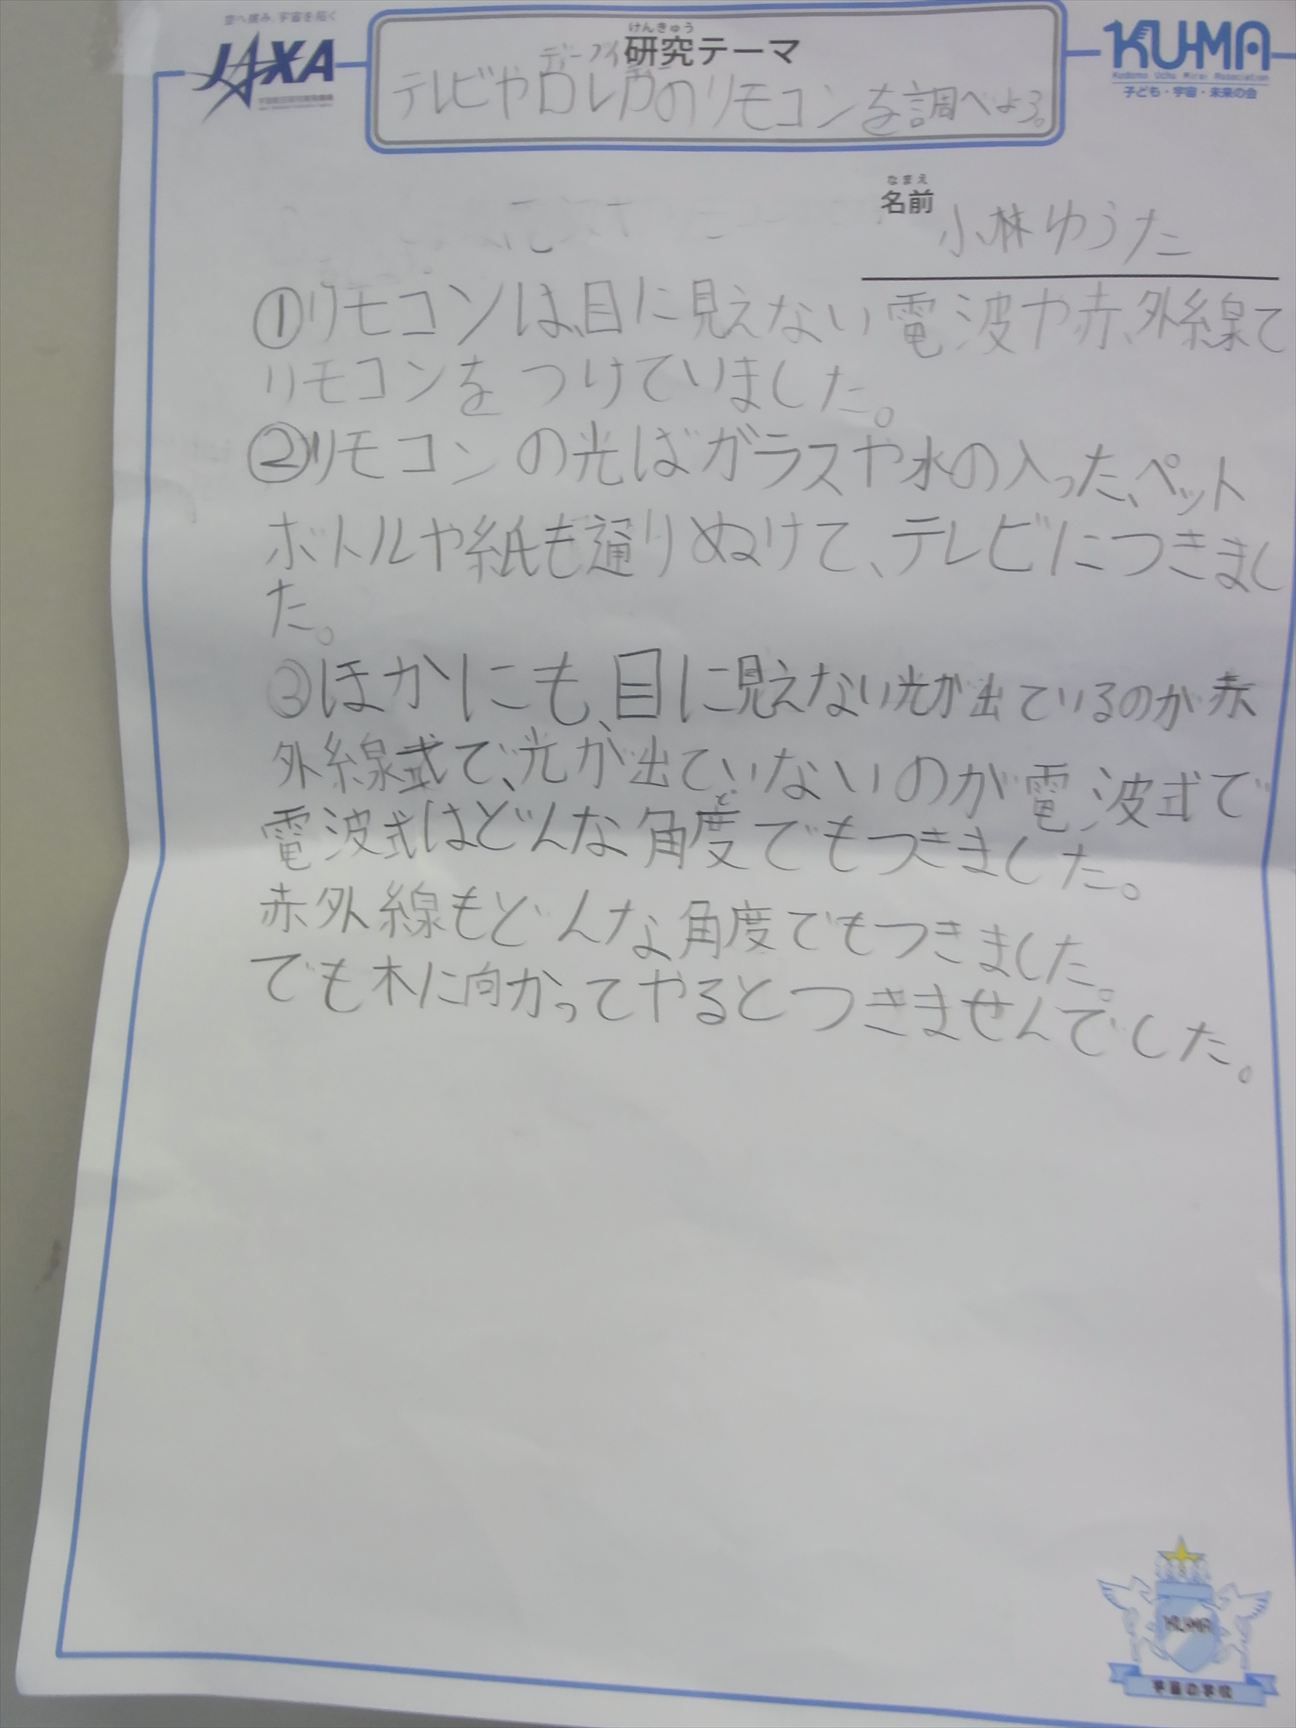 空へ挑み、宇宙を拓く
JAXA
けんきゅう
研究テーマ
KU-MA
Kodomo Uchu Mirai Association
子ども・宇宙・未来の会
ディーブイ
テレビやDVDのリモコンを調べよう。
なまえ
名前
小林ゆうた
①リモコンは、目に見えない電波や赤外線で
リモコンをつけていました。
②リモコンの光はガラスや水の入った、ペット
ボトルや紙も通りぬけて、テレビにつきまし
た。
③ほかにも、目に見えない光が出ているのが赤
外線式で、光が出ていないのが電波式で
ど
電波式はどんな角度でもつきました。
赤外線もどんな角度でもつきました。
でも木に向かってやるとつきませんでした。
KU-MA
宇宙の学校